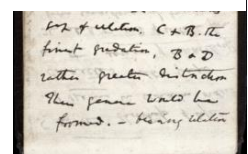 gap of relation. C & B. the
finest gradation, B & D
rather greater distinction
Thus genera would be
formed. — bearing relation